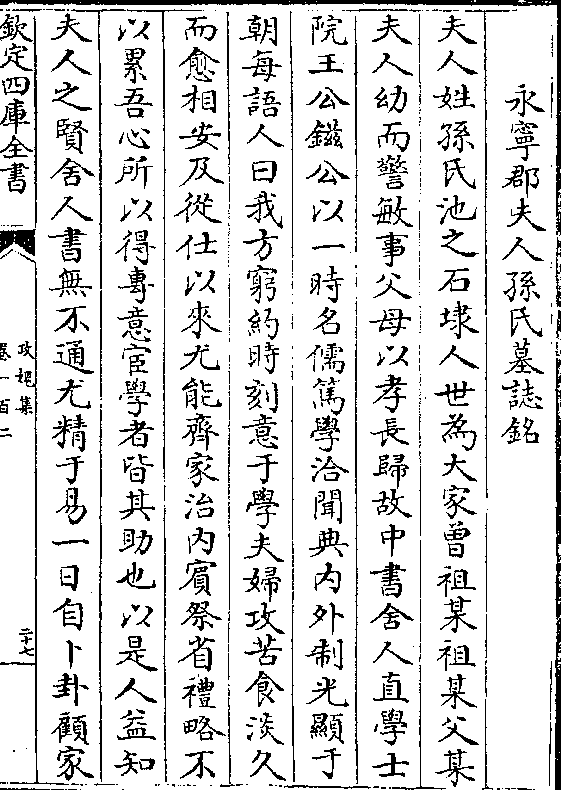 永寧郡夫人孫氏墓誌銘
夫人姓孫氏池之石埭人世為大家曾祖某祖某父某
夫人幼而警敏事父母以孝長歸故中書舍人直學士
院王公鎡公以一時名儒篤學洽聞典内外制光顯于
朝每語人曰我方窮約時刻意于學夫婦攻苦食淡久
而愈相安及從仕以來尤能齊家治内賓祭省禮略不
以累吾心所以得專意宦學者皆其助也以是人益知
夫人之賢舍人書無不通尤精于易一日自卜卦顧家
欽定四庫全書
攻媿集
卷一百二
二十七